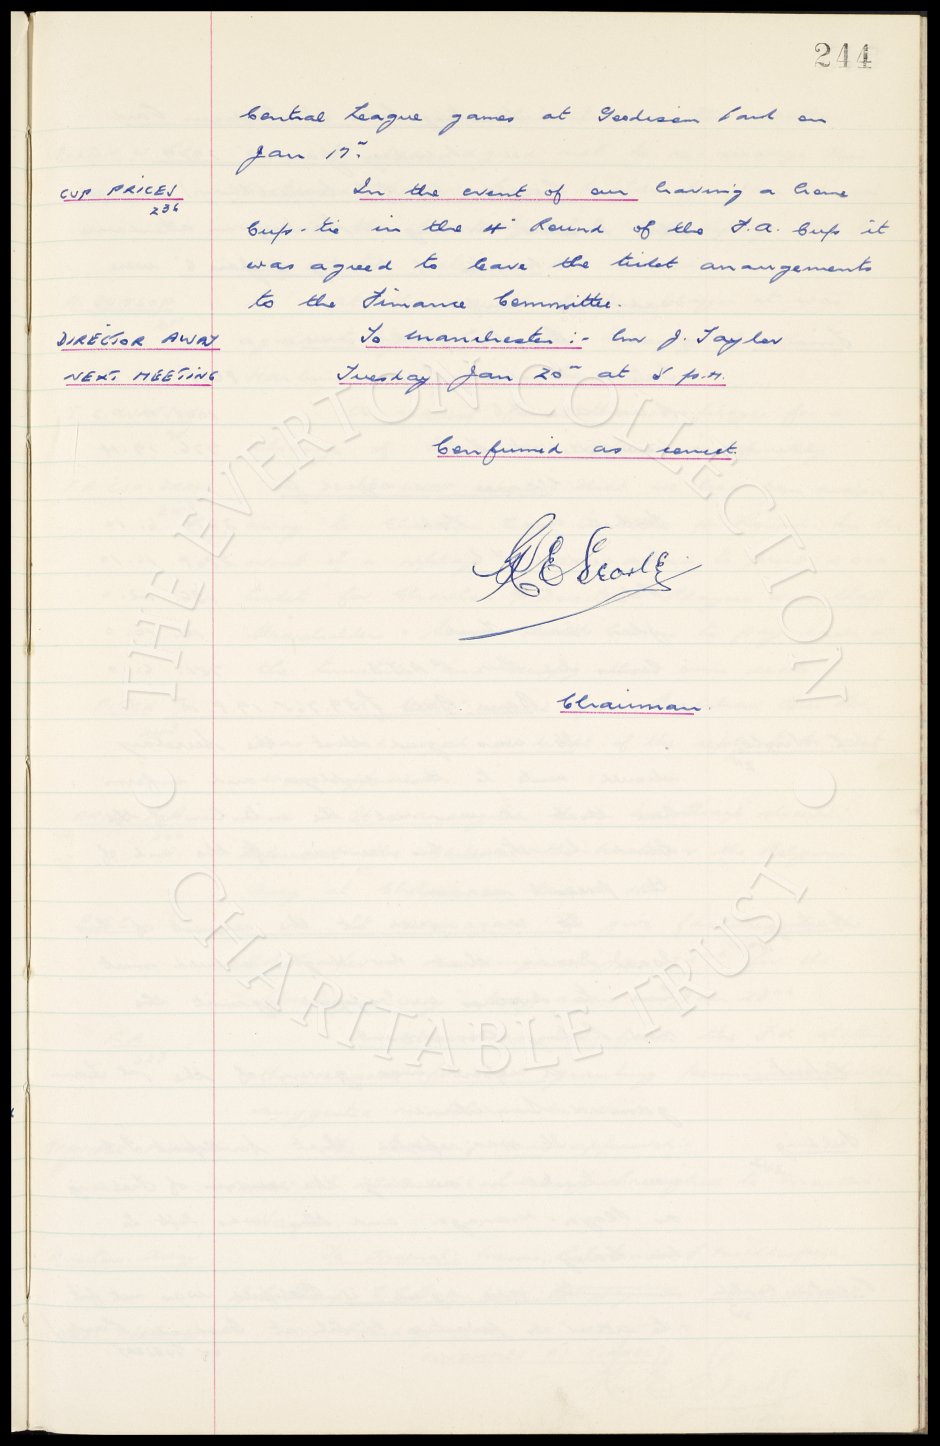 244
Central League games at Goodison Park on
Jan 17th.
CUP PRICES In the event of our having a home
236
Cup-tie in the 4th Round of the F.A. Cup it
was agreed to leave the ticket arrangements
to the Finance Committee.
DIRECTOR AWAY To Manchester :- Mr J. Taylor
NEXT MEETING Tuesday Jan 20th at 5 p.m.
Confirmed as correct.
E Searle
Chairman.
THE EVERTON COLLECTION
CHARITABLE TRUST